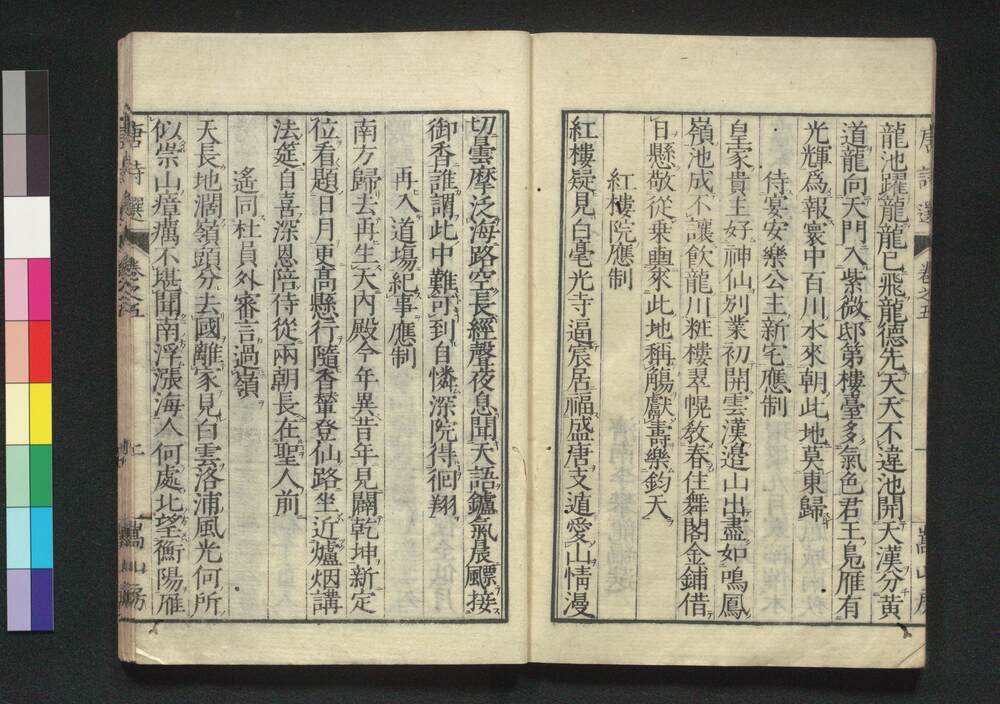 唐詩選 卷之五 嵩山房
龍池躍龍龍已飛龍德先天天不違池開天漢分黃
道龍向天門入紫微邸第樓臺多氣色君王鳧雁有
光輝爲報寰中百川水來朝此地莫東歸
侍宴安樂公主新宅應制
皇家貴主好神仙別業初開雲漢邉山出盡如鳴鳳
嶺池成不讓飲龍川粧樓翠幌敎春住舞閣金鋪借
日懸敬從乗輿來此地稱觴獻壽樂鈞天
紅樓院應制
紅樓疑見白毫光寺逼宸居福盛唐支遁愛山情漫
切曇摩泛海路空長經聲夜息聞天語鑪氣晨飄接
御香誰謂此中難可到自憐深院得徊翔
再入道場紀事應制
南方歸去再生天內殿今年異昔年見闢乾坤新定
位看題日月更高懸行隨香輦登仙路坐近爐烟講
法筵自喜深恩陪侍從兩朝長在聖人前
遙同杜員外審言過嶺
天長地濶嶺頭分去國離家見白雲洛浦風光何所
似崇山瘴癘不堪聞南浮漲海人何處北望衡陽雁
唐詩選 卷之五 嵩山房